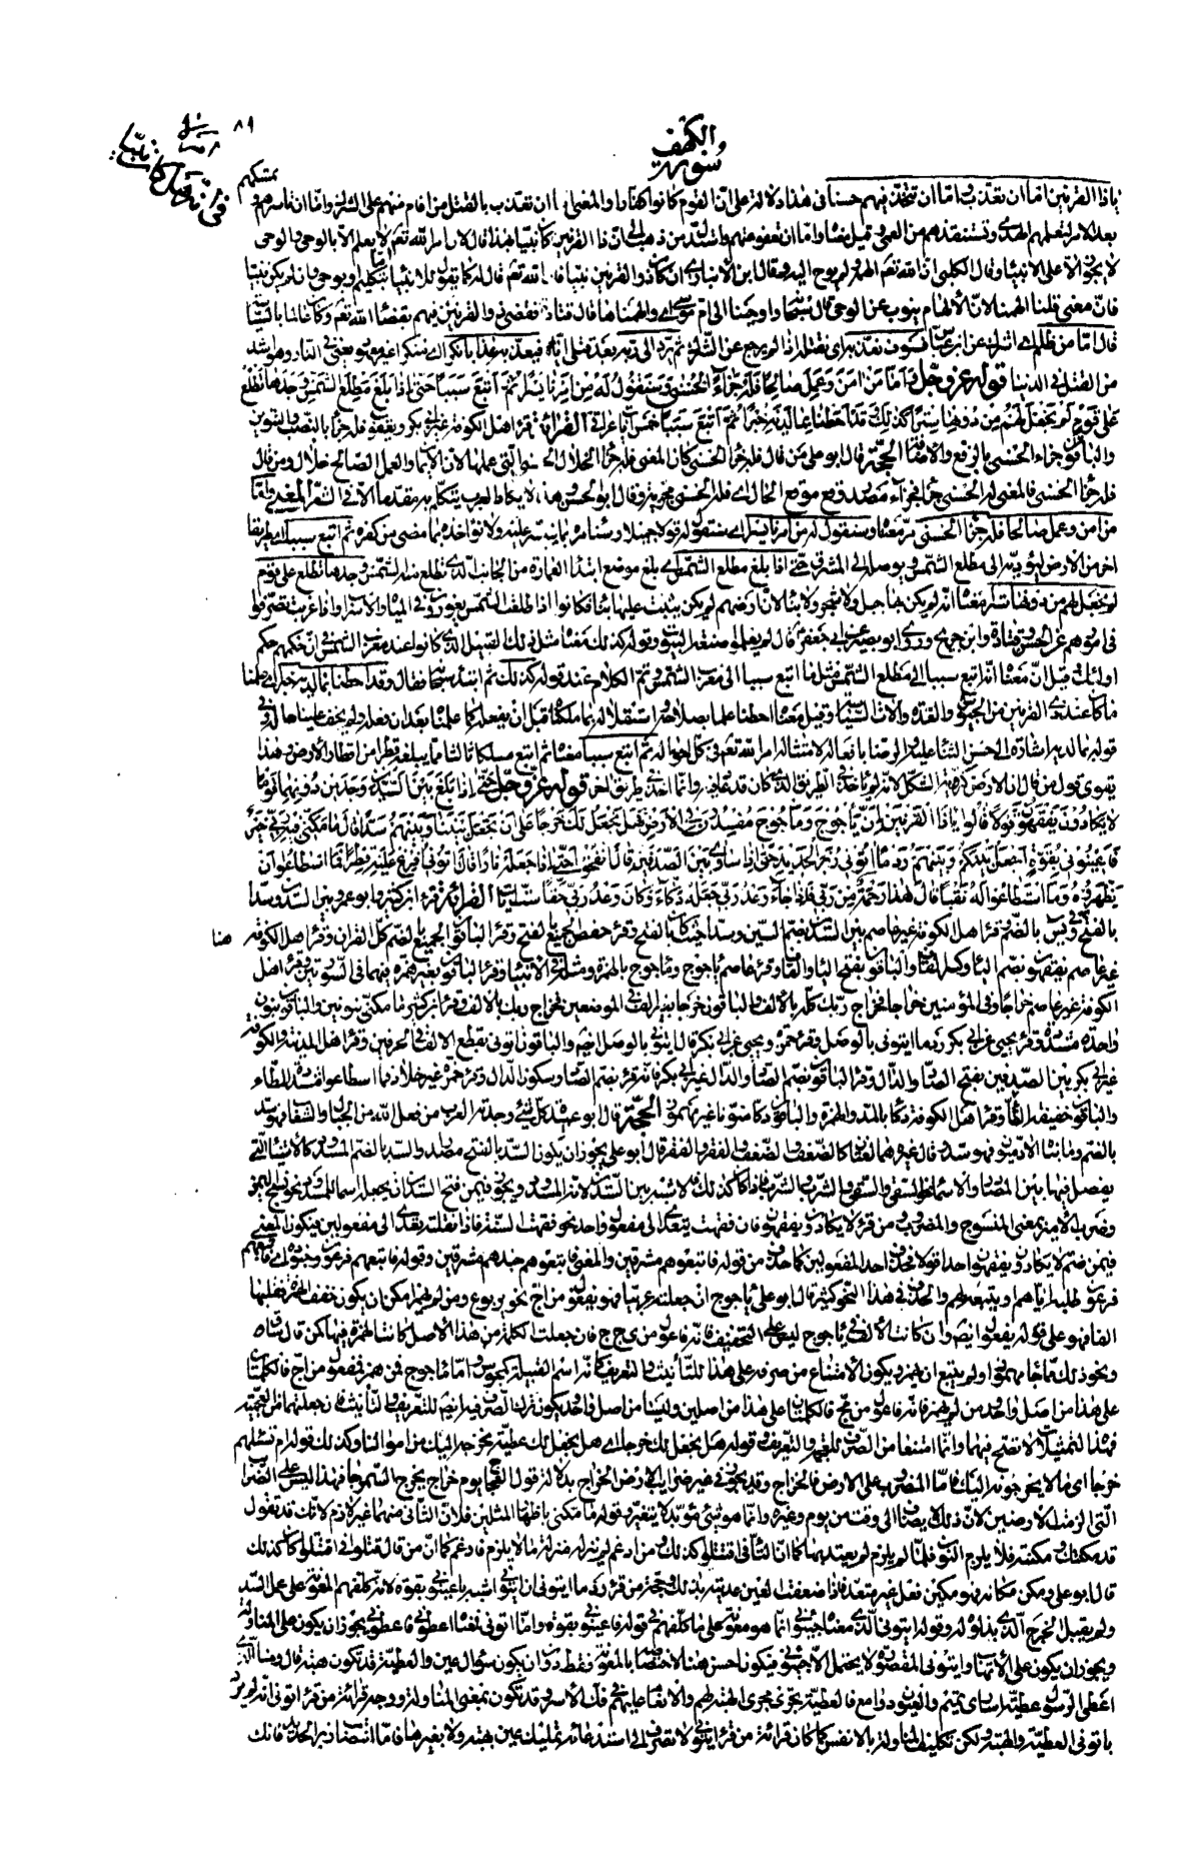 سورة الكهف
٨٩
يا ذا القرنين اما ان تعذب واما ان تتخذ فيهم حسنا في هذا دلالة على ان القوم كانوا كفارا والمعنى اما ان تعذب بالقتل من اقام منهم على الشرك واما ان تأسرهم و تمسكهم
بعد الاسر لتعلمهم الهدى وتستنقذهم من العمى وقيل معناه واما ان تعفو عنهم واستدل من ذهب الى ان ذا القرنين كان نبيا بهذا قال لان امر الله تعالى لا يعلم الا بالوحي والوحي
لا يجوز الا على الانبياء وقال الكلبي ان الله تعالى الهمه ولم يوح اليه وقال ابن الانباري ان كان ذو القرنين نبيا فان الله تعالى قال له كما يقول للانبياء اما بتكليم او بوحي وان لم يكن نبيا
فان معنى قلنا الهمنا لان الالهام ينوب عن الوحي قال سبحانه واوحينا الى ام موسى اي والهمناها قال قتادة فقضى ذو القرنين فيهم بقضاء الله تعالى وكان عالما بالسياسة
قال اما من ظلم اي اشرك فسوف نعذبه اي نقتله اذا لم يرجع عن الشرك ثم يرد الى ربه بعد قتلي اياه فيعذبه عذابا نكرا اي منكرا غير معهود يعني في النار وهو اشد
من القتل في الدنيا قوله عز وجل واما من امن وعمل صالحا فله جزاء الحسنى وسنقول له من امرنا يسرا ثم اتبع سببا حتى اذا بلغ مطلع الشمس وجدها تطلع
على قوم لم نجعل لهم من دونها سترا كذلك وقد احطنا بما لديه خبرا ثم اتبع سببا خمس ايات عراقي القراءة قرا اهل الكوفة غير ابي بكر ويعقوب فله جزاء بالنصب والتنوين
والباقون جزاء الحسنى بالرفع والاضافة الحجة قال ابو علي من قال فله جزاء الحسنى كان المعنى فله جزاء الخلال الحسنى التي عملها لان الايمان والعمل الصالح خلال ومن قال
فله جزاء الحسنى فالمعنى له الحسنى جزاء فجزاء مصدر وقع موقع الحال اي فله الحسنى مجزية وقال ابو الحسن هذا لا يكاد العرب يتكلم به مقدما الا في الشعر المعنى واما
من امن وعمل صالحا فله جزاء الحسنى مر معناه وسنقول له من امرنا يسرا اي سنقول له قولا جميلا وسنأمره بما يتيسر عليه ولا نؤاخذه بما مضى من كفره ثم اتبع سببا اي طريقا
اخر من الارض ليؤديه الى مطلع الشمس ويوصله الى المشرق حتى اذا بلغ مطلع الشمس اي بلغ موضع ابتداء العمارة من الجانب الذي تطلع منه الشمس وجدها تطلع على قوم
لم نجعل لهم من دونها سترا معناه انه لم يكن بها جبل ولا شجر ولا بناء لان ارضهم لم يكن يثبت عليها بناء فكانوا اذا طلعت الشمس يغورون في المياه والاسراب واذا غربت تصرفوا
في امورهم عن الحسن وقتادة وابن جريج وروى ابو بصير عن ابي جعفر قال لم يعلموا صنعة البيوت وقوله كذلك معناه مثل ذلك القبيل الذي كانوا عند مغرب الشمس في ان حكمهم حكم
اولئك وقيل ان معناه انه اتبع سببا الى مطلع الشمس مثل ما اتبع سببا الى مغرب الشمس وتم الكلام عند قوله كذلك ثم ابتدأ سبحانه فقال وقد احطنا بما لديه خبرا اي علمنا
ما كان عند ذي القرنين من الجيوش والعدة والات السياسة وقيل معناه احطنا علما بصلاحه واستقلاله بما ملكناه قبل ان يفعله كما علمناه بعد ان فعله ولم يخف علينا حاله وفي
قوله بما لديه اشارة الى حسن الثناء عليه والرضا بافعاله لامتثاله امر الله تعالى في كل احواله ثم اتبع سببا معناه ثم اتبع مسلكا ثالثا مما يبلغه قطرا من اقطار الارض وهذا
يقوي قول من قال ان الارض كرية الشكل لانه لم يأخذ في الطريق الذي كان قد عاد فيه وانما اخذ في طريق اخر قوله عز وجل حتى اذا بلغ بين السدين وجد من دونهما قوما
لا يكادون يفقهون قولا قالوا يا ذا القرنين ان يأجوج ومأجوج مفسدون في الارض فهل نجعل لك خرجا على ان تجعل بيننا وبينهم سدا قال ما مكني فيه ربي خير
فاعينوني بقوة اجعل بينكم وبينهم ردما اتوني زبر الحديد حتى اذا ساوى بين الصدفين قال انفخوا حتى اذا جعله نارا قال اتوني افرغ عليه قطرا فما اسطاعوا ان
يظهروه وما استطاعوا له نقبا قال هذا رحمة من ربي فاذا جاء وعد ربي جعله دكاء وكان وعد ربي حقا ست ايات القراءة قرأ ابن كثير وابو عمرو بين السدين وسدا
بالفتح وفي يس بالضم وقرأ اهل الكوفة غير عاصم بين السدين بضم السين وسدا حيث كان بالفتح وقرأ حفص الجميع بالفتح وقرأ الباقون الجميع بالضم كل القران وقرأ اهل الكوفة هنا
غير عاصم يفقهون بضم الياء وكسر القاف والباقون بفتح الياء والقاف وقرأ عاصم يأجوج ومأجوج بالهمزة ومثله في الانبياء وقرأ الباقون بغير همزة فيهما في السورتين وقرأ اهل
الكوفة غير عاصم خراجا وفي المؤمنين خراجا فخراج ربك كله بالالف والباقون خرجا بغير الف في الموضعين فخراج ربك بالالف وقرأ ابن كثير ما مكنني بنونين والباقون بنون
واحدة مشددة وقرأ يحيى عن ابي بكر ردما ايتوني بالوصل وقرأ حمزة ويحيى عن ابي بكر قال ايتوني بالوصل ايضا والباقون اتوني بقطع الالف في الحرفين وقرأ اهل المدينة والكوفة
غير ابي بكر بين الصدفين بفتح الصاد والدال وقرأ الباقون بضم الصاد والدال غير ابي بكر فانه قرأ بضم الصاد وسكون الدال وقرأ حمزة غير خلاد فما اسطاعوا مشددة الطاء
والباقون خفيفة الطاء وقرأ اهل الكوفة دكاء بالمد والهمزة والباقون دكا منونا غير مهموز الحجة قال ابو عبيدة كل شيء وجدته العرب من فعل الله من الجبال والشعاب فهو سد
بالضم وما بناه الادميون فهو سد وقال غيره هما لغتان كالضعف والضعف والفقر والفقر قال ابو علي يجوز ان يكون السد بالفتح مصدرا والسد بالضم المسدود كالاشياء التي
يفصل فيها بين المصادر والاسماء نحو السقي والسقي والشرب والشرب فاذا كان كذلك فالاشبه بين السدين لانه المسدود ويجوز فيمن فتح السدين ان يجعله اسما للمسدود نحو نسج اليمن
وضرب الامير بمعنى المنسوج والمضروب ومن قرأ لا يكادون يفقهون فان فقهت يتعدى الى مفعول واحد نحو فقهت السنة فاذا نقلته تعدى الى مفعولين فيكون المعنى
فيمن ضم لا يكادون يفقهون احدا قولا فحذف احد المفعولين كما حذف من قوله فاتبعوهم مشرقين والمعنى فاتبعوهم جندهم مشرقين وقوله فاتبعهم فرعون وجنوده اي اتبعهم
فرعون طلبه اياهم او تتبعه لهم والحذف في هذا النحو كثير قال ابو علي يأجوج ان جعلته عربيا فهو يفعول من اج نحو يربوع ومن لم يهمز امكن ان يكون خفف الهمزة فقلبها
الفا فهو على قوله يفعول ايضا وان كانت الالف في يأجوج ليس على التخفيف فانه فاعول من ي ج ج فان جعلت الكلمة من هذا الاصل كانت الهمزة فيها كمن قال سأق
ونحو ذلك مما جاء مهموزا ولم يتبع ان يهمز ويكون الامتناع من صرفه على هذا للتأنيث والتعريف كانه اسم القبيلة كمجوس واما مأجوج فمن همز فمفعول من اج فالكلمتان
على هذا من اصل واحد ومن لم يهمز فانه فاعول من مج فالكلمتان على هذا من اصلين وليسا من اصل واحد ويكون ترك الصرف فيه ايضا للتعريف والتأنيث فان جعلتهما من العجمية
فهذا التمثيل لا تصح فيهما وانما امتنعا من الصرف للعجمة والتعريف وقوله هل نجعل لك خرجا اي هل نجعل لك عطية نخرجه اليك من اموالنا وكذلك قوله ام تسئلهم
خرجا اي مالا يخرجونه اليك فاما المضروب على الارض فالخراج وقد يجوز في غير ضرائب الارض الخراج بدلالة قول العجاج يوم خراج يخرج السمرجا فهذا ليس على الضرائب
التي الزمت الارضين لان ذلك لا يضاف الى وقت من يوم وغيره وانما هو شيء مؤبد لا يتغير قوله ما مكنني باظهار المثلين فلان الثاني منهما غير لازم لانك قد تقول
قد مكنتك ومكنته فلا يلزم النون فلما لم يلزم لم يعتد بها كما ان التاء في اقتتلوا كذلك ومن ادغم لم ينزله منزلة ما لا يلزم فادغم كما ان من قال قتلوا في اقتتلوا كذلك
قال ابو علي ومكن مكانه فهو مكين فعل غير متعد فاذا ضعفت العين عديته بذلك وحجة من قرأ ردما ايتوني ان ايتوني اشبه باعينوني بقوة لانه كلفهم المعونة على عمل السد
ولم يقبل الخرج الذي بذلوه له وقوله ايتوني الذي معناه جيئوني انما هو معونة على ما كلفهم في قوله فاعينوني بقوة واما اتوني فمعناه اعطوني واعطوني يجوز ان يكون على المناولة
ويجوز ان يكون على الاتهاب وايتوني المقصورة لا يحتمل الا جيئوني فيكون احسن هنا لاختصاصه بالمعونة فقط دون ان يكون سؤال عين والعطية قد تكون هبة قال ومنا الذي
اعطى الرسول عطية اسارى تميم والعيون دوامع فالعطية يجوز مجرى الهبة لهم والانعام عليهم في فك الاسر وقد تكون بمعنى المناولة ووجه قراءة من قرأ اتوني انه لم يرد
باتوني العطية والهبة ولكن تكليف المناولة بالانفس كما كان قراءة من قرأ ايتوني لا تصرف الى استدعاء تمليك عين بهبة ولا بغيرها فاما انتصاب زبر الحديد فانك